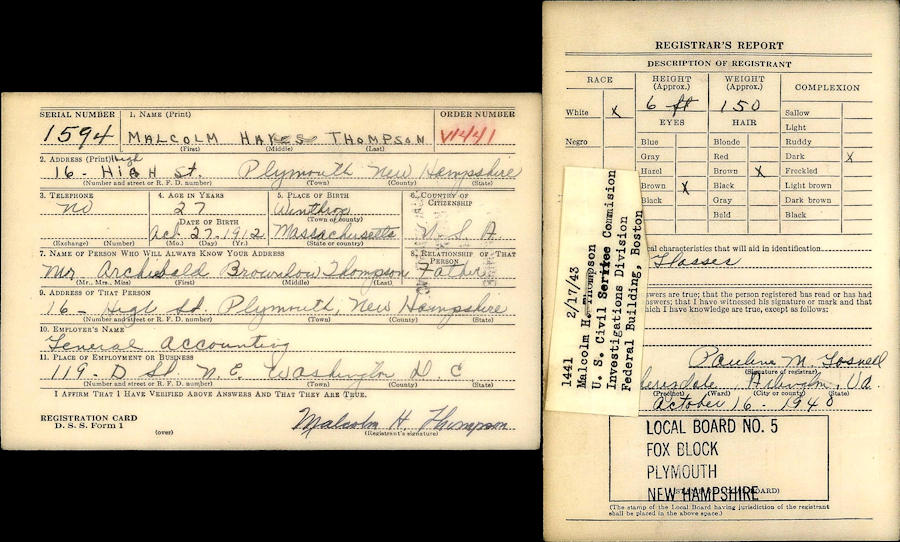 SERIAL NUMBER
1. NAME (Print)
ORDER NUMBER
1594
MALCOLM HAYES THOMPSON
V1441
(First) (Middle) (Last)
2. ADDRESS (Print) High
16 - HIGH St. Plymouth New Hampshire
(Number and street or R. F. D. number) (Town) (County) (State)
3. TELEPHONE
4. AGE IN YEARS
5. PLACE OF BIRTH
6. COUNTRY OF CITIZENSHIP
No
27
Winthrop
(Town or county)
DATE OF BIRTH
Oct. 27. 1912
Massachusetts
U. S. A
(Exchange) (Number)
(Mo.) (Day) (Yr.)
(State or country)
7. NAME OF PERSON WHO WILL ALWAYS KNOW YOUR ADDRESS
8. RELATIONSHIP OF THAT PERSON
Mr Archibald Brownlow Thompson Father
(Mr., Mrs., Miss) (First) (Middle) (Last)
9. ADDRESS OF THAT PERSON
16 - High St. Plymouth, New Hampshire
(Number and street or R. F. D. number) (Town) (County) (State)
10. EMPLOYER'S NAME
General Accounting
11. PLACE OF EMPLOYMENT OR BUSINESS
119 - D St. N.E. Washington D. C
(Number and street or R. F. D. number) (Town) (County) (State)
I AFFIRM THAT I HAVE VERIFIED ABOVE ANSWERS AND THAT THEY ARE TRUE.
REGISTRATION CARD
D. S. S. Form 1
(over)
Malcolm H. Thompson
(Registrant's signature)
REGISTRAR'S REPORT
DESCRIPTION OF REGISTRANT
RACE
HEIGHT (Approx.)
WEIGHT (Approx.)
COMPLEXION
White X
6 ft
150
Sallow
EYES
HAIR
Light
Negro
Blue
Blonde
Ruddy
Gray
Red
Dark X
Hazel
Brown X
Freckled
Brown X
Black
Light brown
Black
Gray
Dark brown
Bald
Black
1441 2/17/43
Malcolm H. Thompson
U. S. Civil Serikee Commision
Investigations Division
Federal Building, Boston
characteristics that will aid in identification
Glasses
are true; that the person registered has read or has had
; that I have witnessed his signature or mark and that
I have knowledge are true, except as follows:
Pauline M. Gosnell
(Signature of registrar)
Va.
(Precinct) (Ward) (City or county) (State)
October 16 - 1940
LOCAL BOARD NO. 5
FOX BLOCK
PLYMOUTH
NEW HAMPSHIRE
(The stamp of the Local Board having jurisdiction of the registrant
shall be placed in the above space.)